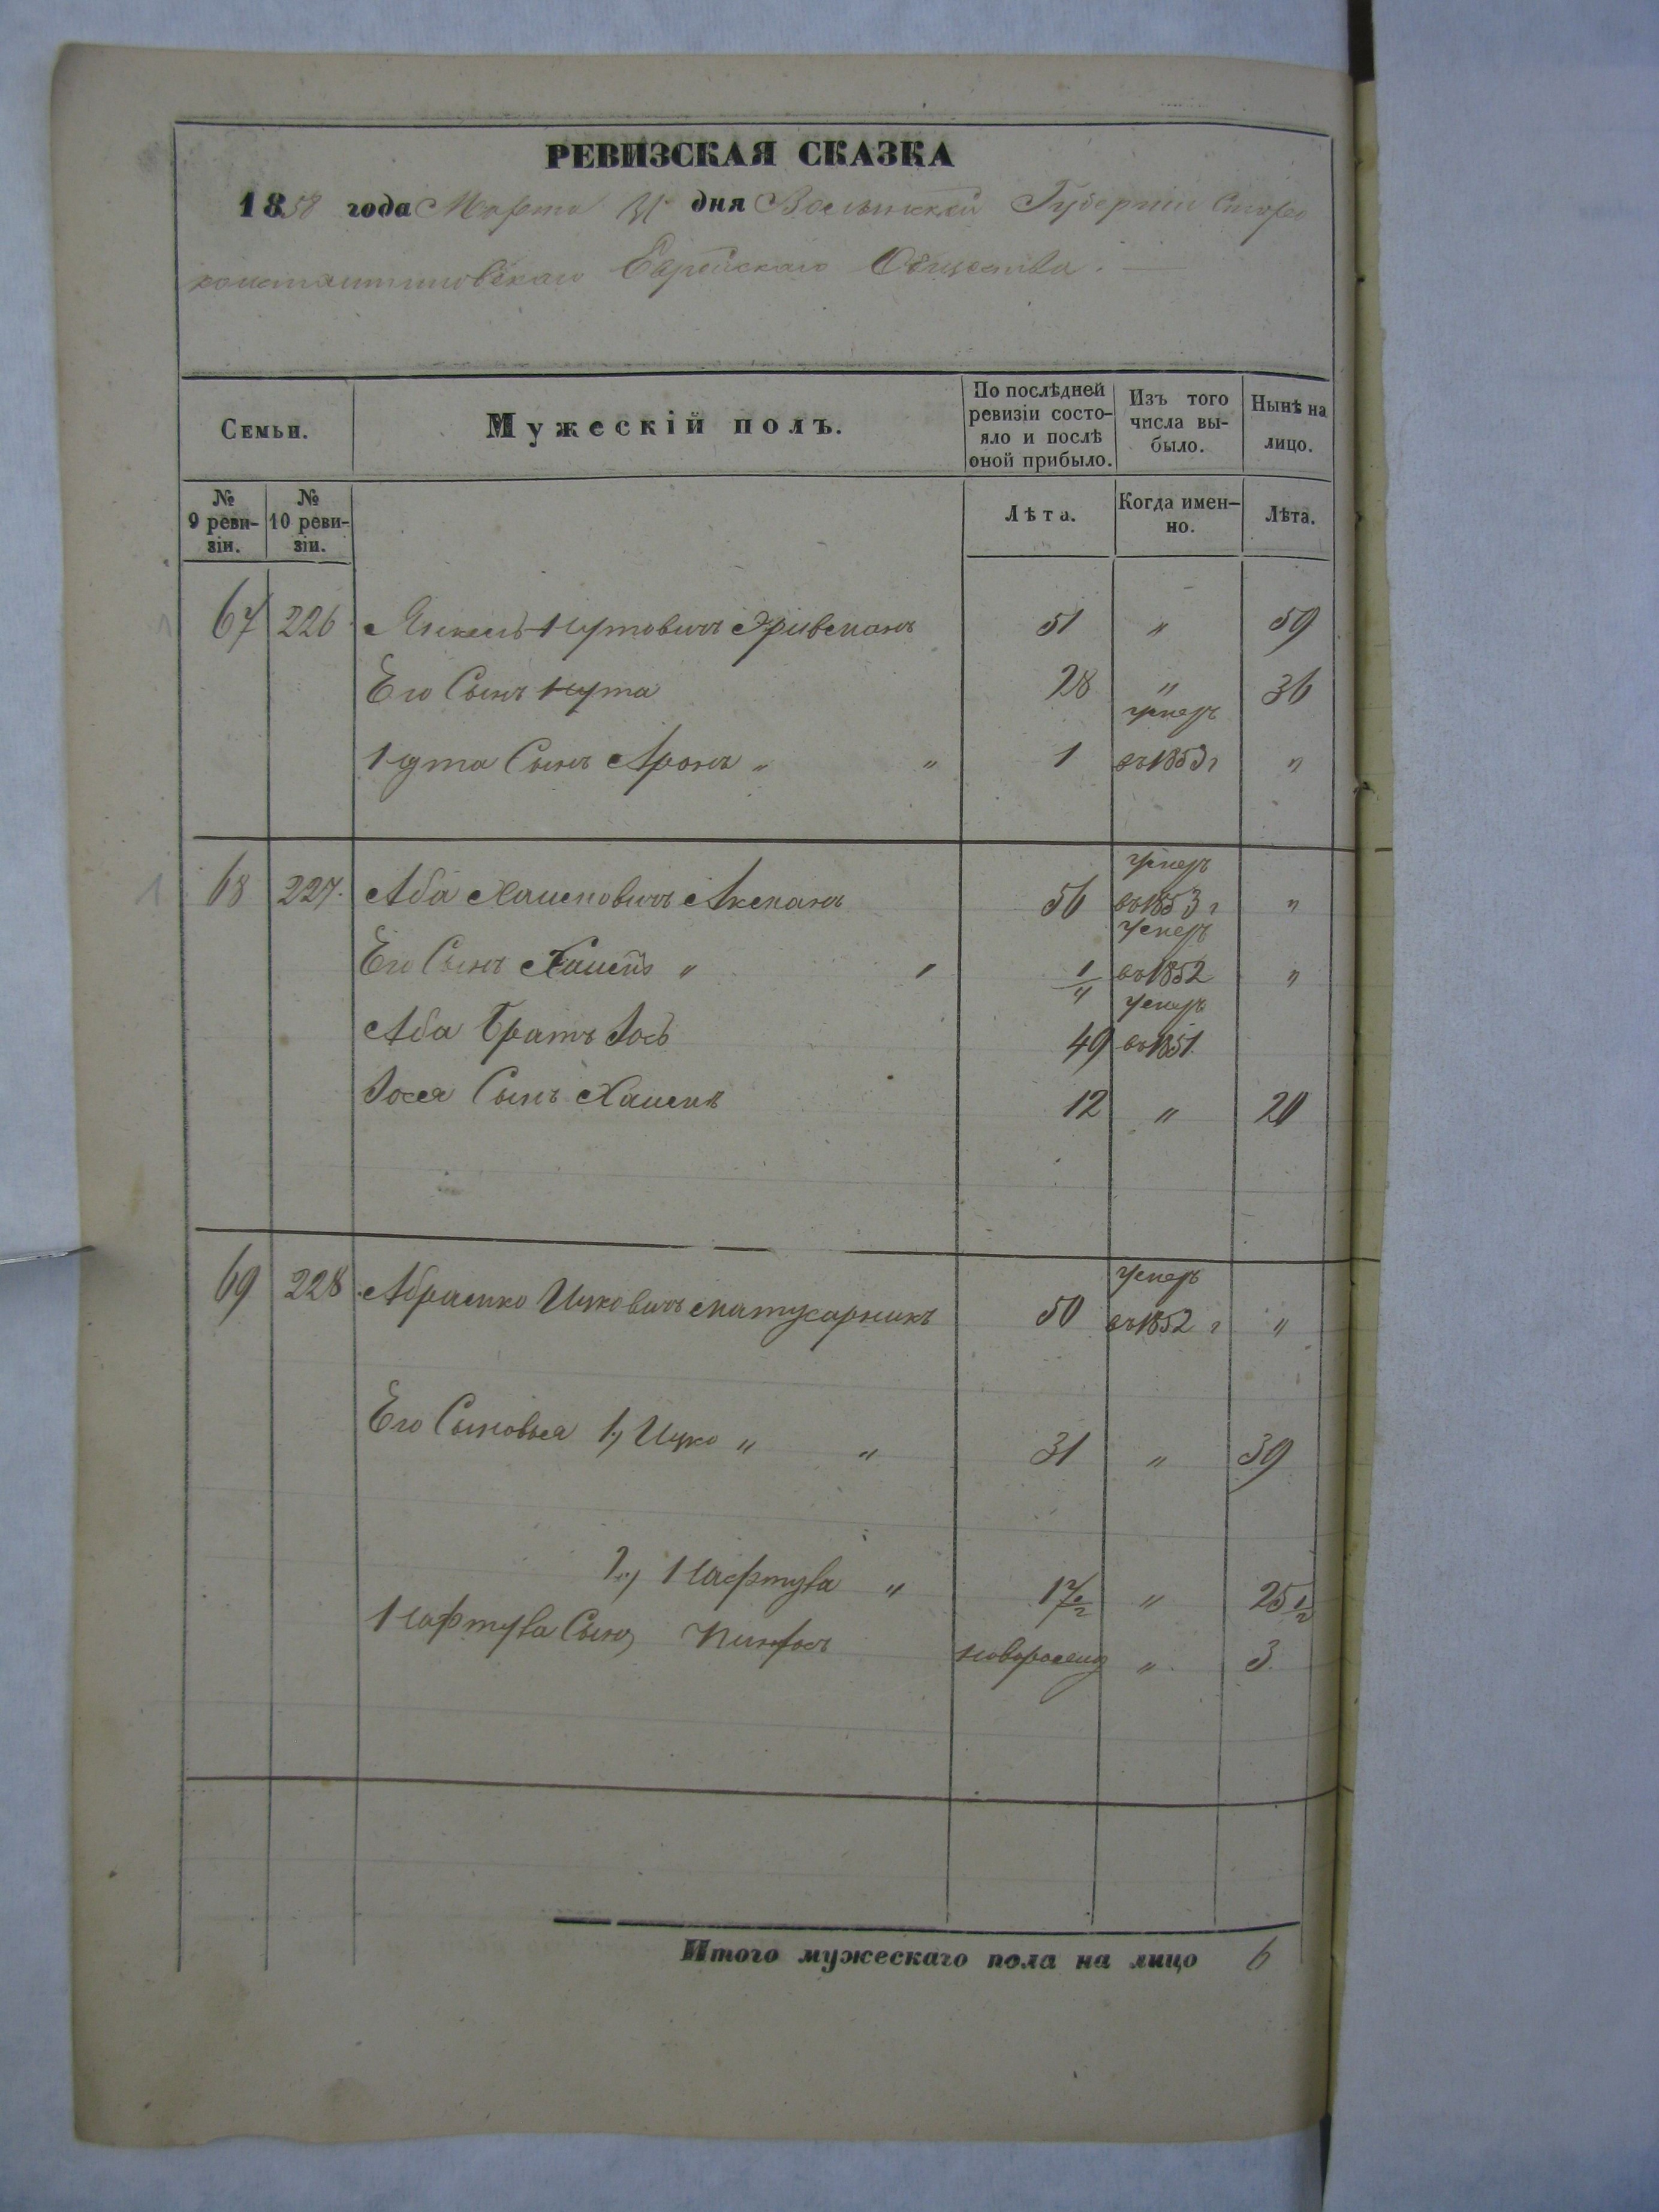 РЕВИЗСКАЯ СКАЗКА
1858 года Марта 31 дня Волынской Губернии Старо
константиновскаго Еврейскаго Общества.
Семьи.
Мужескій полъ.
По послѣдней ревизіи состояло и послѣ оной прибыло.
Изъ того числа выбыло.
Нынѣ на лицо.
№ 9 ревизіи.
№ 10 ревизіи.
Лѣта.
Когда именно.
Лѣта.
67 226 Янкель Нутовичъ 51 " 59
Его Сынъ Нута 28 " 36
Нута Сынъ Аронъ " " 1 умеръ въ 1853 г "
68 227. Аба Хаимовичъ Акманъ 56 умеръ въ 1853 г "
Его Сынъ Хаимъ " " 1/4 умеръ въ 1852 "
Аба Братъ Іось 49 умеръ въ 1851.
Іося Сынъ Хаимъ 12 " 20
69 228 Абрамко Ицковичъ 50 умеръ въ 1852 г "
Его Сыновья 1, Ицко " " 31 " 39
2, Нафтула " 17 1/2 " 25 1/2
Нафтула Сынъ Пинхосъ новорожд " 3.
Итого мужескаго пола на лицо 6